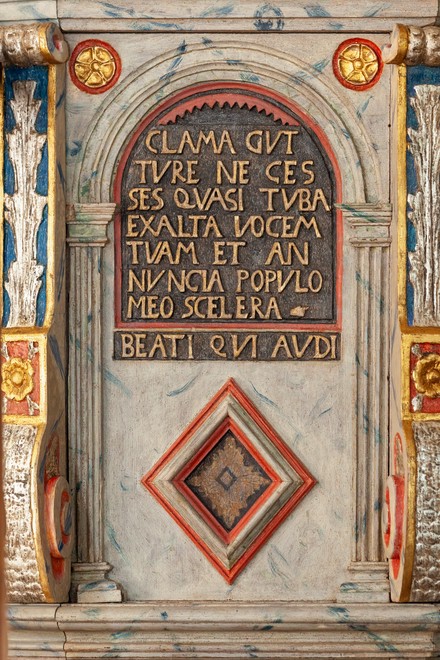 CLAMA GVT
TVRE NE CES
SES QVASI TVBA
EXALTA VOCEM
TVAM ET AN
NVNCIA POPVLO
MEO SCELERA
BEATI QVI AVDI